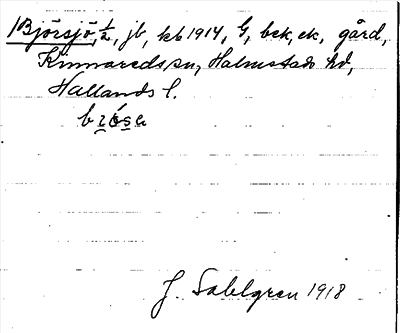 Björsjö, 1/2, jb, kb 1914, G, bek, ek, gård,
Kinnareds sn, Halmstads hd,
Hallands l.
J. Sahlgren 1918